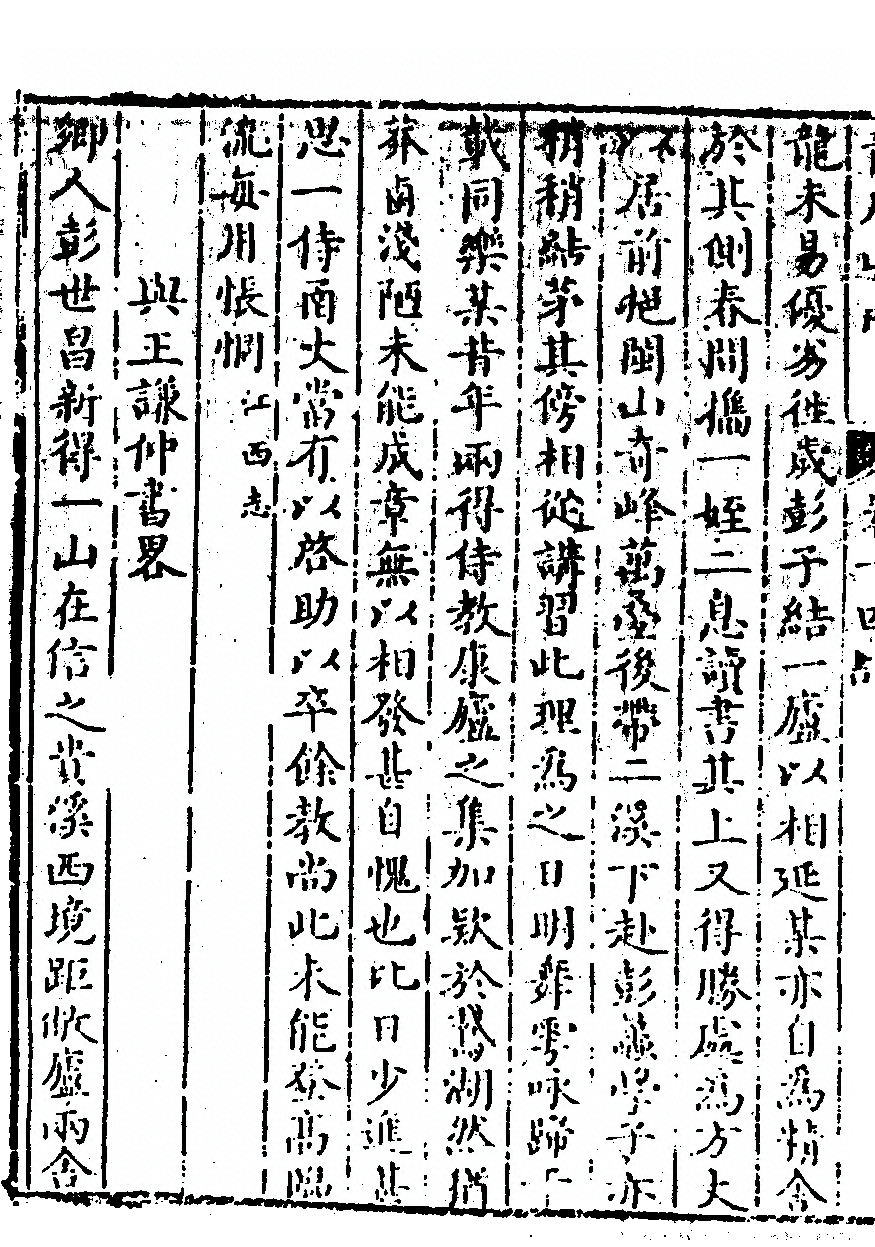 龍未易優劣徃歲彭子結一廬以相延某亦自爲精舍
於其側春間攜一姪二息讀書其上又得勝處爲方丈
以居前挹閩山奇峰萬疊後帶二溪下赴彭蠡學子亦
稍稍結茅其傍相從講習此理爲之日明舞雩咏歸千
載同樂某昔年兩得侍教康廬之集加欵於鵞湖然猶
莽鹵淺陋未能成章無以相發甚自愧也比日少進甚
思一侍函丈當有以啓助以卒餘教尚此未能登高臨
流每用悵惘 江西志
與王謙仲書畧
鄉人彭世昌新得一山在信之貴溪西境距敝廬兩舍